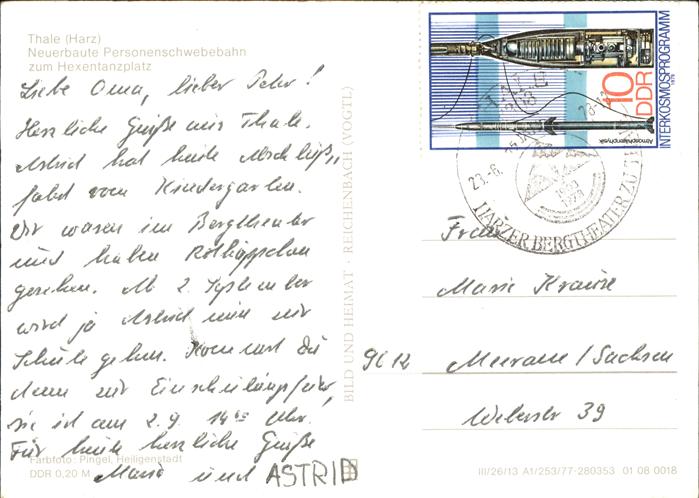 Thale (Harz)
Neuerbaute Personenschwebebahn
zum Hexentanzplatz
Liebe Oma, lieber Peter!
Herzliche Grüße aus Thale.
Astrid hat heute Abschluß-
fahrt vom Kindergarten.
Wir waren im Bergtheater
und haben Rotkäppchen
gesehen. Ab 2. September
wird ja Astrid nun zur
Schule gehen. Kommst Du
denn zur Einschulungsfeier,
sie ist am 2.9. 14 Uhr!
Für heute herzliche Grüße
Maria und ASTRID
Farbfoto: Pingel, Heiligenstadt
DDR 0,20 M
BILD UND HEIMAT · REICHENBACH (VOGTL)
10
DDR
INTERKOSMOSPROGRAMM
1978
Atmosphärenphysik
23.-6.
HARZER BERGTHEATER ZU
Frau
Marie Krause
9612 Meerane/Sachsen
Weberstr 39
III/26/13 A1/253/77-280353 01 08 0018